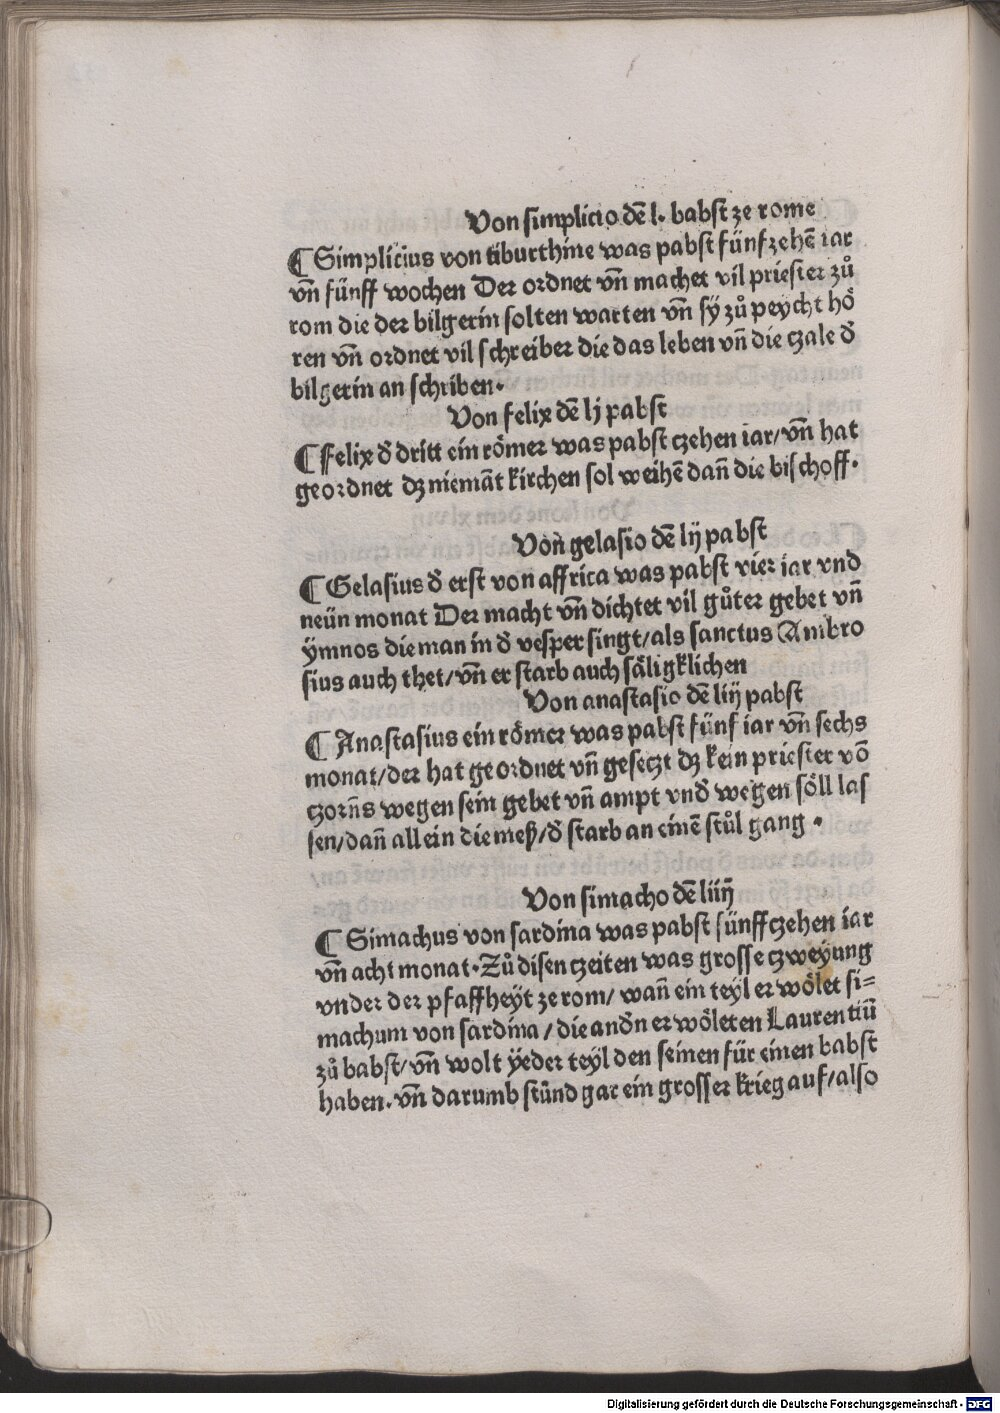 Von simplicio dē l. babst ze rome
¶ Simplicius von tiburthine was pabst fünfzehē iar
vn̄ fünff wochen Der ordnet vn̄ machet vil priester zů
rom die der bilgerin solten warten vn̄ sÿ zů peycht hö
ren vn̄ ordnet vil schreiber die das leben vn̄ die czale d̄
bilgerin an schriben.
Von felix dē lj pabst
¶ Felix d̄ dritt ein römer was pabst czehen iar/vn̄ hat
geordnet dz niemāt kirchen sol weihē dan̄ die bischoff.
Von gelasio dē lij pabst
¶ Gelasius d̄ erst von affrica was pabst vier iar vnd
neün monat Der macht vn̄ dichtet vil gůter gebet vn̄
ÿmnos die man in d̄ vesper singt/als sanctus Ambro
sius auch thet/vn̄ er starb auch säligklichen
Von anastasio dē liij pabst
¶ Anastasius ein römer was pabst fünf iar vn̄ sechs
monat/der hat geordnet vn̄ geseczt dz kein priester vō
czorn̄s wegen sein gebet vn̄ ampt vnd̄ wegen söll las
sen/dan̄ allein die meß/d̄ starb an einē stůl gang .
Von simacho dē liiij
¶ Simachus von sardina was pabst fünffczehen iar
vn̄ acht monat.Zů disen czeiten was grosse czweÿung
vnder der pfaffheyt ze rom/ wan̄ ein teyl erwölet si=
machum von sardina/die and̄n erwöleten Laurentiū
zů babst/vn̄ wolt ÿeder teyl den seinen für einen babst
haben.vn̄ darumb stůnd gar ein grosser krieg auf/also
Digitalisierung gefördert durch die Deutsche Forschungsgemeinschaft - DFG